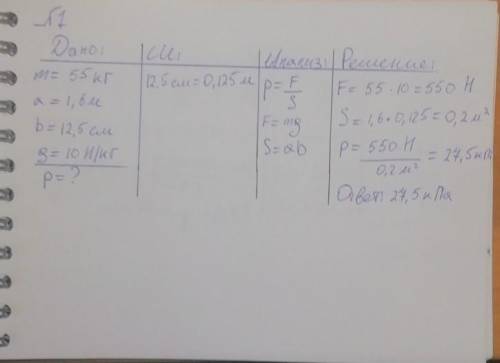 №1
Дано:
m = 55 кг
a = 1,6 м
b = 12,5 см
g = 10 Н/кг
p = ?
СИ:
12,5 см = 0,125 м
Анализ:
p = F/S
F = mg
S = ab
Решение:
F = 55 · 10 = 550 Н
S = 1,6 · 0,125 = 0,2 м²
p = 550 Н / 0,2 м² = 27,5 кПа
Ответ: 27,5 кПа